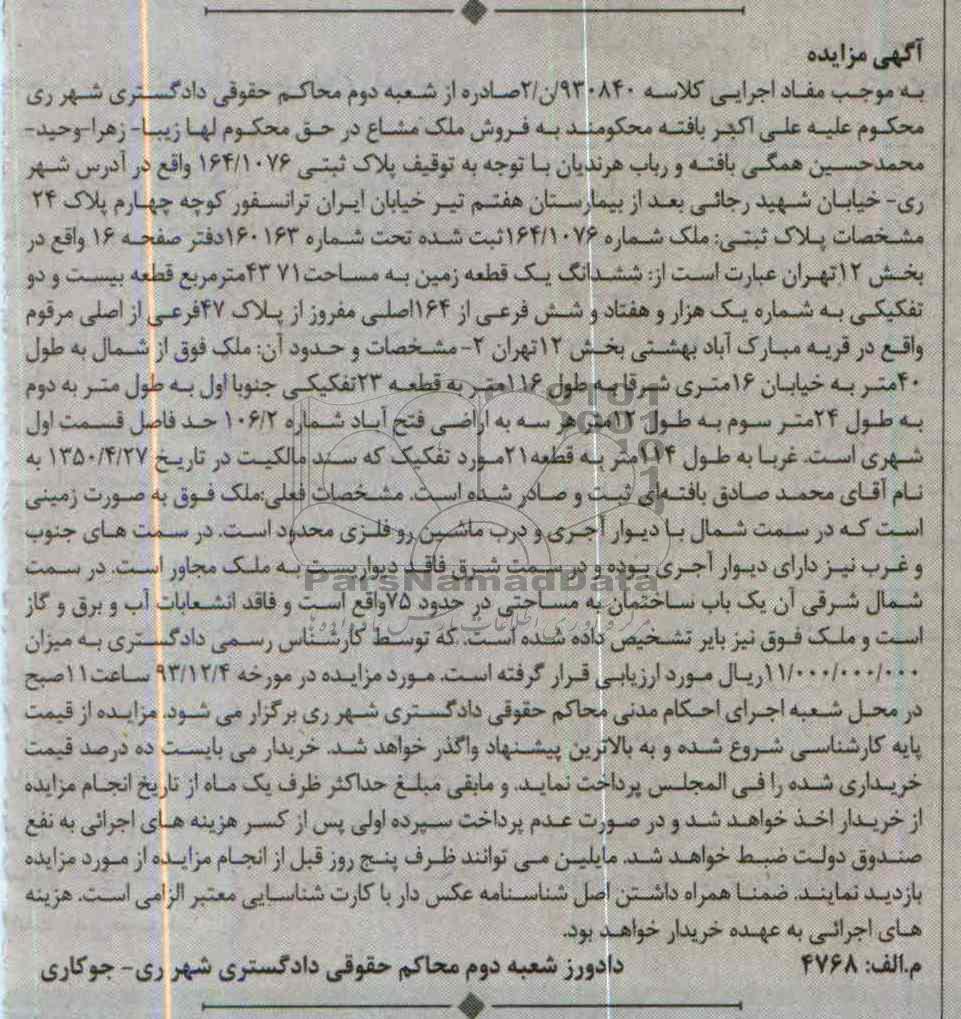 آگهی مزایده
به موجب مفاد اجرایی کلاسه ۹۳۰۸۴۰/ن/۲صادره از شعبه دوم محاکم حقوقی دادگستری شهر ری
محکوم علیه علی اکبر بافته محکومند به فروش ملک مشاع در حق محکوم لها زیبا- زهرا-وحید-
محمدحسین همگی بافته و رباب هرندیان با توجه به توقیف پلاک ثبتی ۱۶۴/۱۰۷۶ واقع در آدرس شهر
ری- خیابان شهید رجائی بعد از بیمارستان هفتم تیر خیابان ایران ترانسفور کوچه چهارم پلاک ۲۴
مشخصات پلاک ثبتی: ملک شماره ۱۶۴/۱۰۷۶ثبت شده تحت شماره ۱۶۰۱۶۳دفتر صفحه ۱۶ واقع در
بخش ۱۲تهران عبارت است از: ششدانگ یک قطعه زمین به مساحت۷۱ ۴۳مترمربع قطعه بیست و دو
تفکیکی به شماره یک هزار و هفتاد و شش فرعی از ۱۶۴اصلی مفروز از پلاک ۴۷فرعی از اصلی مرقوم
واقع در قریه مبارک آباد بهشتی بخش ۱۲تهران ۲- مشخصات و حدود آن: ملک فوق از شمال به طول
۴۰متر به خیابان ۱۶متری شرقا به طول ۱۱۶متر به قطعه ۲۳تفکیکی جنوبا اول به طول متر به دوم
به طول ۲۴متر سوم به طول ۱۲متر هر سه به اراضی فتح آباد شماره ۱۰۶/۲ حد فاصل قسمت اول
شهری است. غربا به طول ۱۱۴متر به قطعه۲۱مورد تفکیک که سند مالکیت در تاریخ ۱۳۵۰/۴/۲۷ به
نام آقای محمد صادق بافته‌ای ثبت و صادر شده است. مشخصات فعلی:ملک فوق به صورت زمینی
است که در سمت شمال با دیوار آجری و درب ماشین رو فلزی محدود است. در سمت های جنوب
و غرب نیز دارای دیوار آجری بوده و در سمت شرق فاقد دیواربست به ملک مجاور است. در سمت
شمال شرقی آن یک باب ساختمان به مساحتی در حدود ۷۵واقع است و فاقد انشعابات آب و برق و گاز
است و ملک فوق نیز بایر تشخیص داده شده است. که توسط کارشناس رسمی دادگستری به میزان
۱۱/۰۰۰/۰۰۰/۰۰۰ریال مورد ارزیابی قرار گرفته است. مورد مزایده در مورخه ۹۳/۱۲/۴ ساعت۱۱صبح
در محل شعبه اجرای احکام مدنی محاکم حقوقی دادگستری شهر ری برگزار می شود. مزایده از قیمت
پایه کارشناسی شروع شده و به بالاترین پیشنهاد واگذر خواهد شد. خریدار می بایست ده درصد قیمت
خریداری شده را فی المجلس پرداخت نماید. و مابقی مبلغ حداکثر ظرف یک ماه از تاریخ انجام مزایده
از خریدار اخذ خواهد شد و در صورت عدم پرداخت سپرده اولی پس از کسر هزینه های اجرائی به نفع
صندوق دولت ضبط خواهد شد. مایلین می توانند ظرف پنج روز قبل از انجام مزایده از مورد مزایده
بازدید نمایند. ضمنا همراه داشتن اصل شناسنامه عکس دار با کارت شناسایی معتبر الزامی است. هزینه
های اجرائی به عهده خریدار خواهد بود.
م.الف: ۴۷۶۸ دادورز شعبه دوم محاکم حقوقی دادگستری شهر ری- جوکاری
ParsNamadData